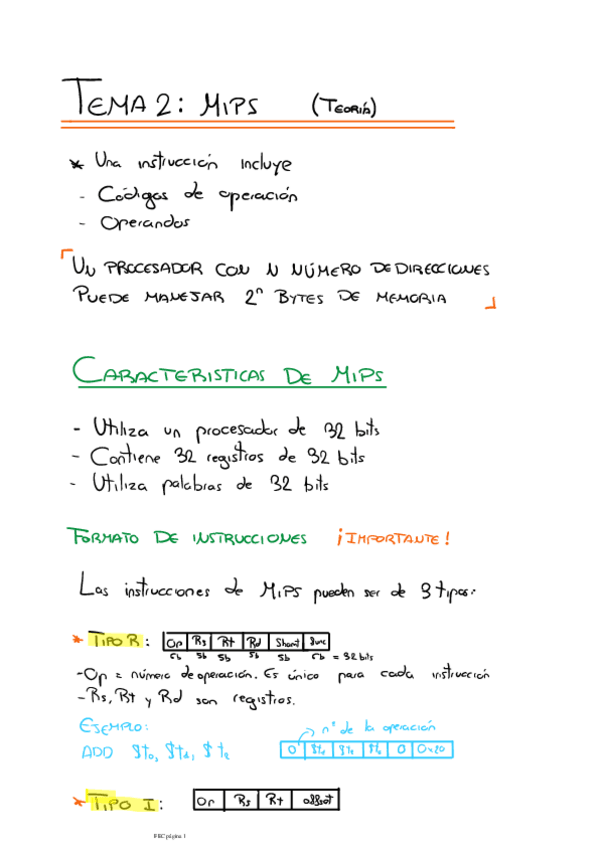 TEMA 2: MIPS (TEORÍA)
* Una instrucción incluye
- Códigos de operación
- Operandos
UN PROCESADOR CON N NÚMERO DE DIRECCIONES
PUEDE MANEJAR 2ⁿ BYTES DE MEMORIA
CARACTERISTICAS DE MIPS
- Utiliza un procesador de 32 bits
- Contiene 32 registros de 32 bits
- Utiliza palabras de 32 bits
FORMATO DE INSTRUCCIONES ¡IMPORTANTE!
Las instrucciones de MIPS pueden ser de 3 tipos:
* TIPO R: Op Rs Rt Rd Shamt Func
6b 5b 5b 5b 5b 6b = 32 bits
-Op = número de operación. Es único para cada instrucción
-Rs, Rt y Rd son registros.
EJEMPLO: nº de la operación
ADD $t0, $t1, $t2 0 $t1 $t2 $t0 0 0x20
* TIPO I: Op Rs Rt offset
FEC página 1